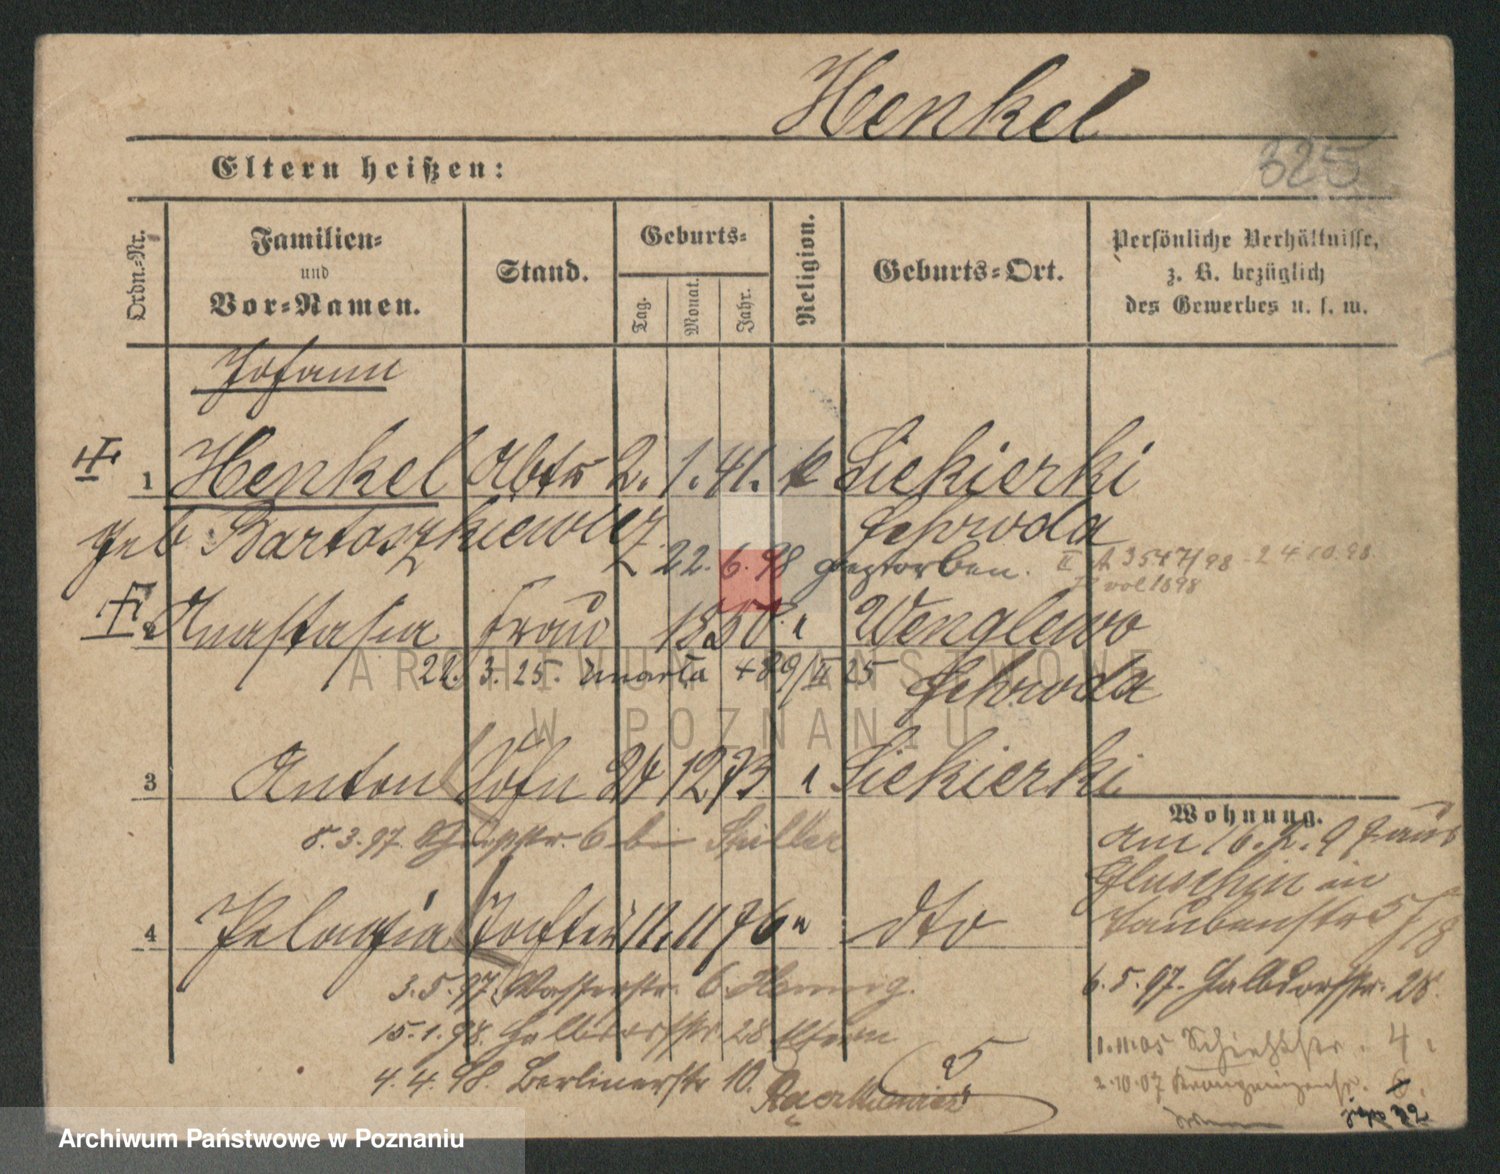 Henkel
325
Eltern heißen:
Ordn.-Nr.
Familien-
und
Vor-Namen.
Stand.
Geburts-
Tag.
Monat.
Jahr.
Religion.
Geburts-Ort.
Persönliche Verhältnisse,
z. B. bezüglich
des Gewerbes u. s. w.
Johann
1 Henkel Arbtr 2. 1. 41. k Siekierki
geb Bartoszkiewicz Schroda
22. 6. 98 gestorben. II A 3547/98 - 24.10.98
2 Anastasia Frau 1850. " Wenglewo
22. 3. 25. zmarła 25 Schroda
ARCHIWUM PAŃSTWOWE
W POZNANIU
3 Anton Sohn 24 12 73 " Siekierki
8. 3. 97. 6 bei
Wohnung.
am 16. 2. 97 aus
Gluschin in
Taubenstr 5/
4 Pelagia Tochter 11. 11 76 " dto
3. 5. 97. Wasserstr. 6
6. 5. 97. Halbdorfstr. 28.
15. 1. 98. Halbdorfstr 28 Eltern
1.11.05 4.
4. 4. 98. Berlinerstr 10.
2.10.07
Archiwum Państwowe w Poznaniu